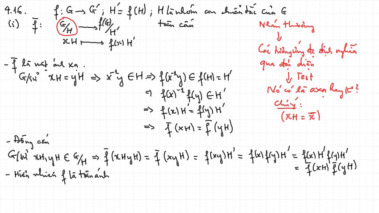 4.16. f: G → G'; H' = f(H); H là nhóm con chuẩn tắc của G
(i) f̄: G/H → f(G)/H' toàn cấu
xH ↦ f(x)H'
- f̄ là một ánh xạ.
G/sử xH = yH ⇒ x⁻¹y ∈ H ⇒ f(x⁻¹y) ∈ f(H) = H'
⇒ f(x)⁻¹ f(y) ∈ H'
⇒ f(x)H' = f(y)H'
⇒ f̄(xH) = f̄(yH)
- Đồng cấu
G/sử xH, yH ∈ G/H ⇒ f̄(xHyH) = f̄(xyH) = f(xy)H' = f(x)f(y)H' = f(x)H' f(y)H'
= f̄(xH) f̄(yH)
- Hiển nhiên f̄ là toàn ánh
Nhóm thương
↓
Có hướng định nghĩa
qua đại diện
↓ Test
Nó có là axạ hay k°?
Chú ý:
(xH = x̄)